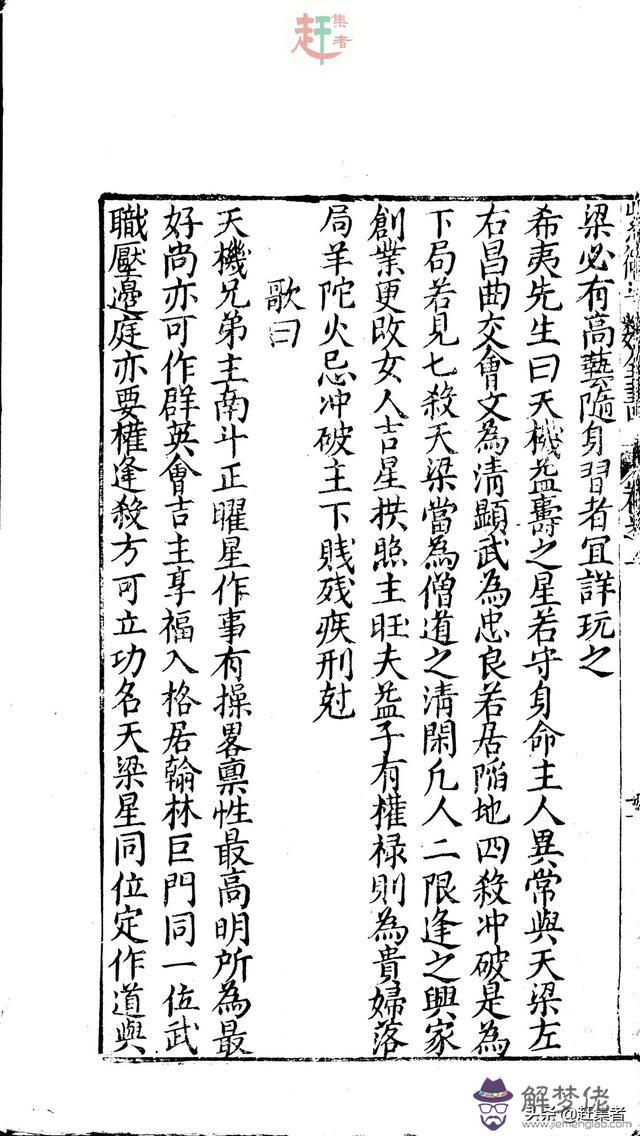 赶集者
梁必有高藝隨身習者宜詳玩之
希夷先生曰天機益壽之星若守身命主人異常與天梁左
右昌曲交會文為清顯武為忠良若居陷地四殺冲破是為
下局若見七殺天梁當為僧道之清閑凡人二限逢之興家
創業更改女人吉星拱照主旺夫益子有權祿則為貴婦落
局羊陀火忌冲破主下賎残疾刑尅
歌曰
天機兄弟主南斗正曜星作事有操畧禀性最高明所為最
好尚亦可作群英會吉主享福入格居翰林巨門同一位武
職壓邉庭亦要權逢殺方可立功名天梁星同位定作道與
解梦佬
www.jiemenglao.com
头条@赶集者